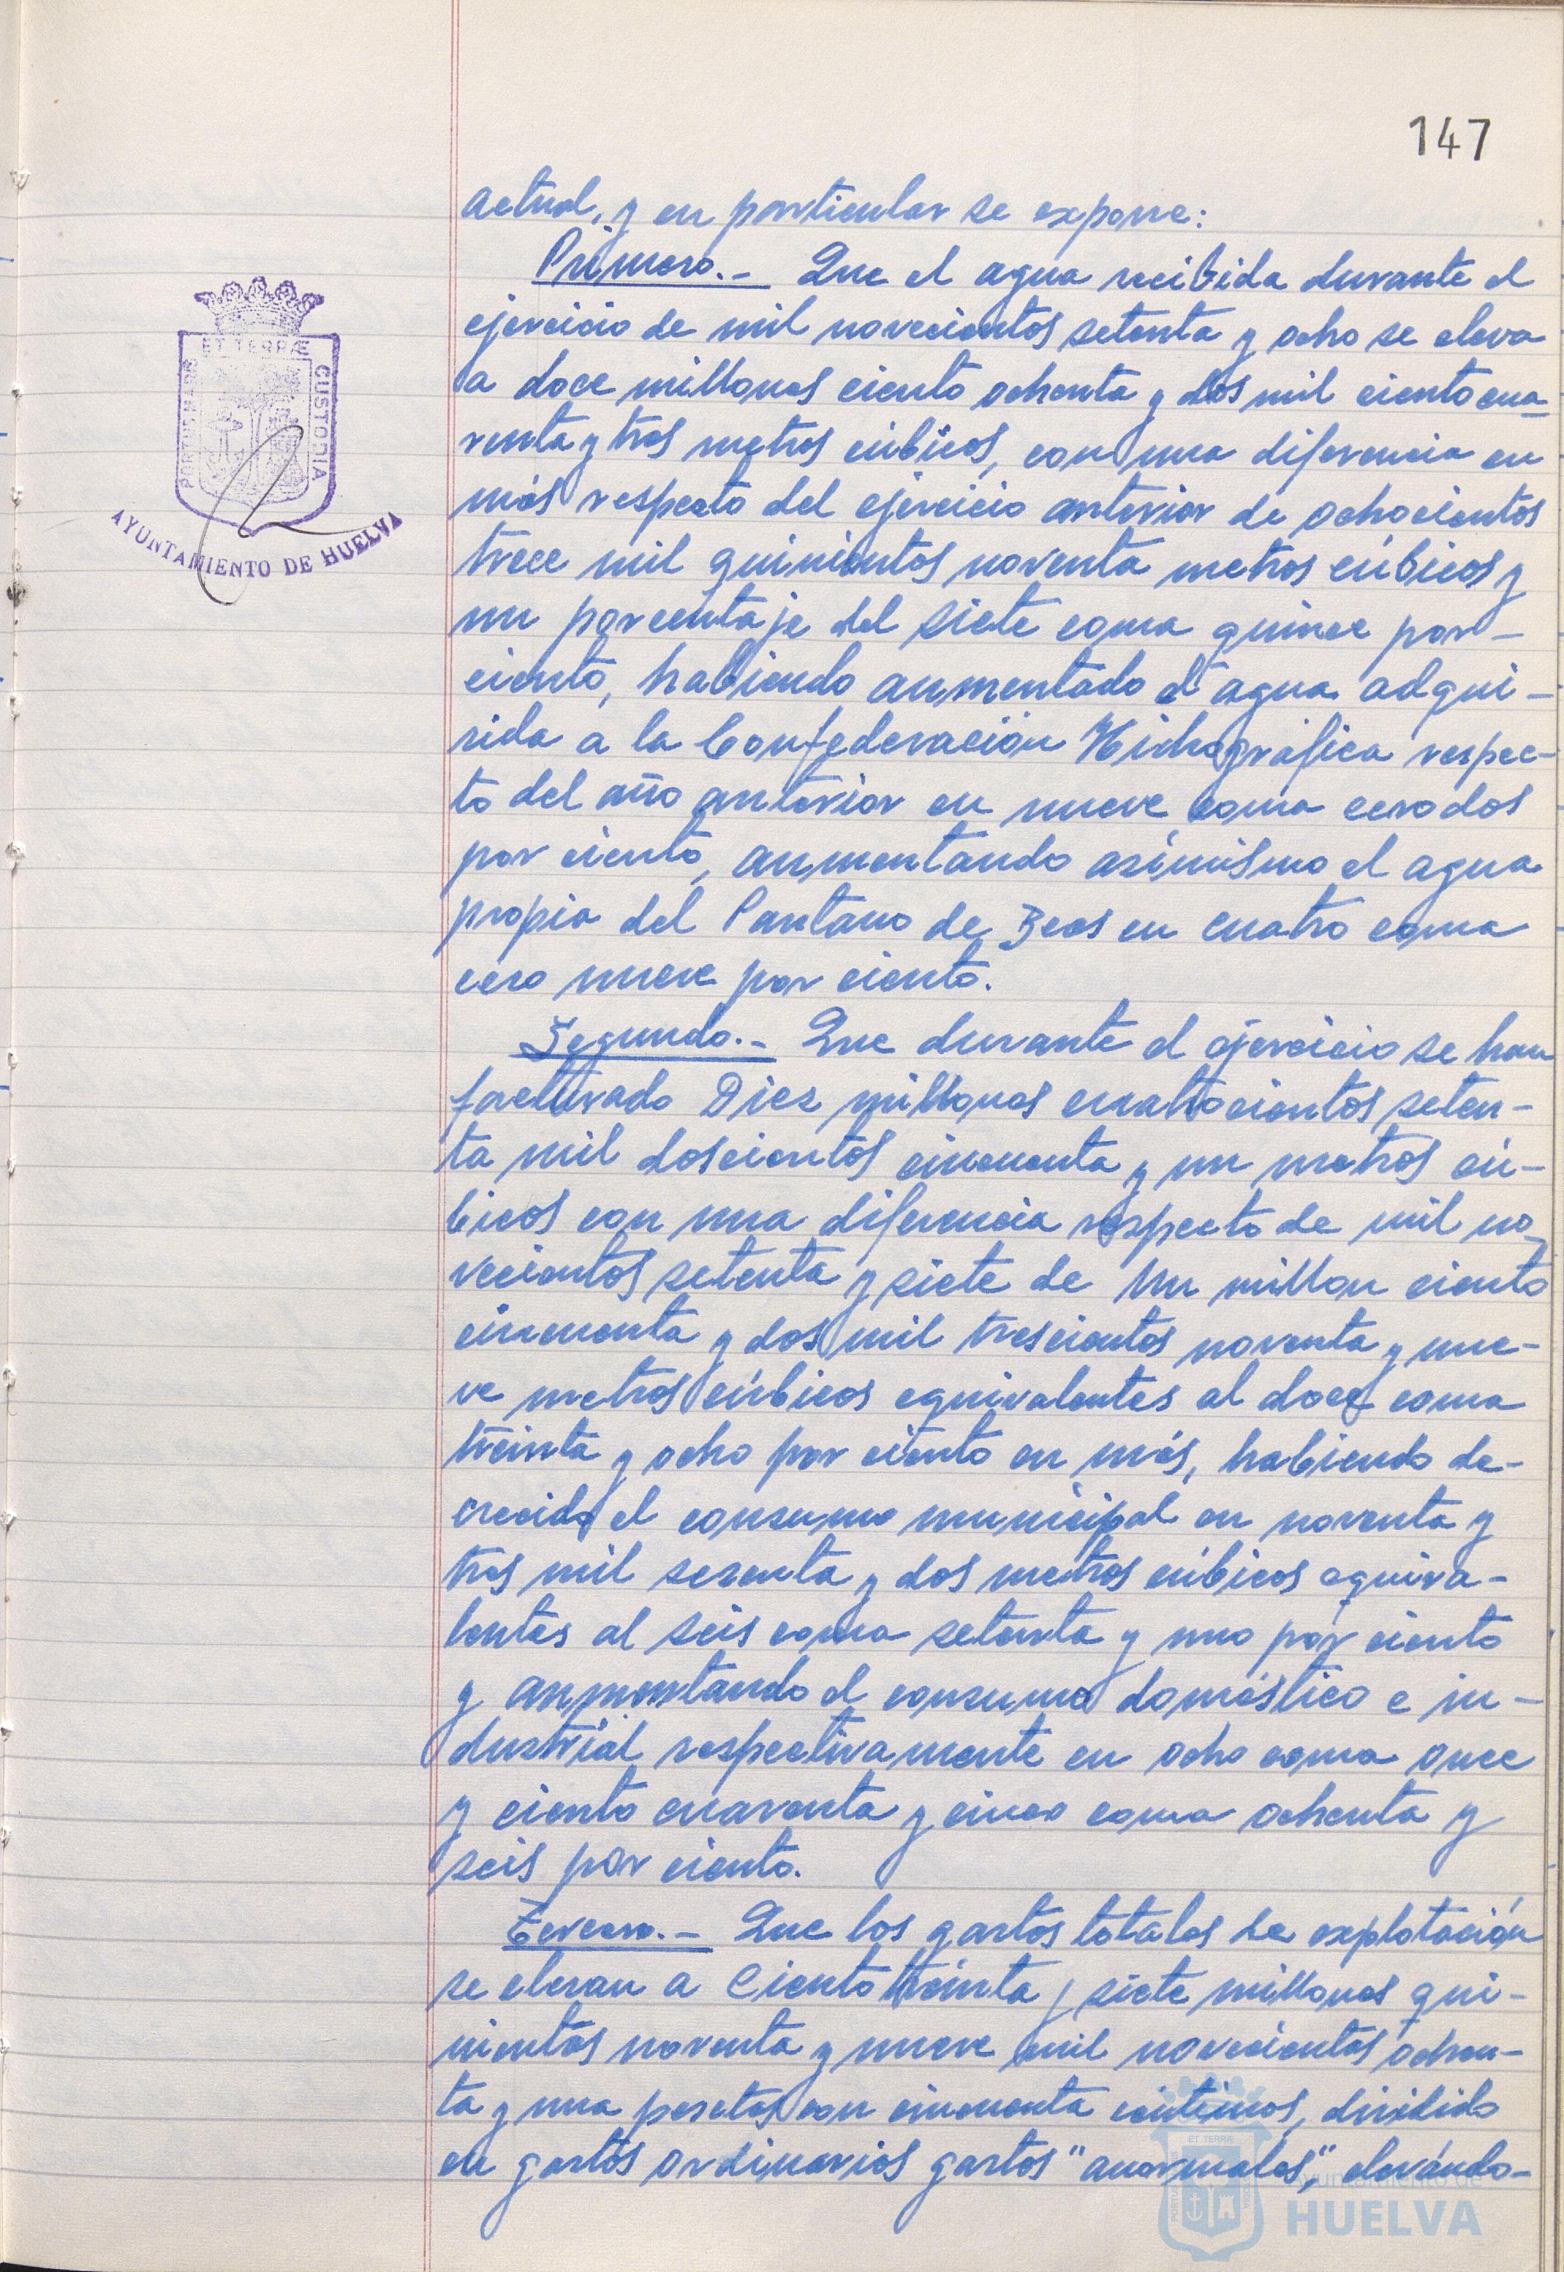 147
actual, y en particular se expone:
Primero.- Que el agua recibida durante el
ejercicio de mil novecientos setenta y ocho se eleva
a doce millones ciento ochenta y dos mil ciento cua-
renta y tres metros cúbicos, con una diferencia en
más respecto del ejercicio anterior de ochocientos
trece mil quinientos noventa metros cúbicos y
un porcentaje del siete coma quince por-
ciento, habiendo aumentado el agua adqui-
rida a la Confederación Hidrográfica respec-
to del año anterior en nueve coma cero dos
por ciento, aumentando asímismo el agua
propia del Pantano de Beas en cuatro coma
cero nueve por ciento.
Segundo.- Que durante el ejercicio se han
facturado Diez millones cuatrocientos seten-
ta mil doscientos cincuenta y un metros cú-
bicos con una diferencia respecto de mil no-
vecientos setenta y siete de Un millon ciento
cincuenta y dos mil trescientos noventa y nue-
ve metros cúbicos equivalentes al doce coma
treinta y ocho por ciento en más, habiendo de-
crecido el consumo municipal en noventa y
tres mil sesenta y dos metros cúbicos equiva-
lentes al seis coma setenta y uno por ciento
y aumentando el consumo doméstico e in-
dustrial respectivamente en ocho coma once
y ciento cuarenta y cinco coma ochenta y
seis por ciento.
Tercero.- Que los gastos totales de explotación
se elevan a Ciento treinta y siete millones qui-
nientos noventa y nueve mil novecientos ochen-
ta y una pesetas con cincuenta céntimos, dividido
en gastos ordinarios gastos "anormales", elevándo-
ET TERRÆ
PORTUS MARIS
CUSTODIA
AYUNTAMIENTO DE HUELVA
ET TERRÆ
Ayuntamiento de
HUELVA